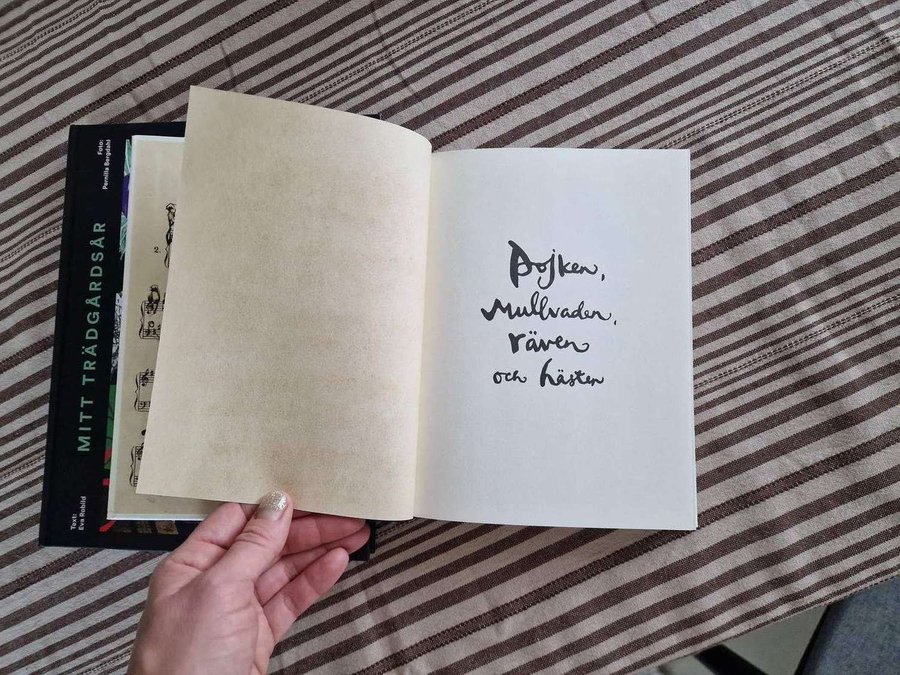 MITT TRÄDGÅRDSÅR
Foto:
Pernilla Bergdahl
Text:
Eva Robild
2
Pojken,
Mullvaden,
räven
och hästen